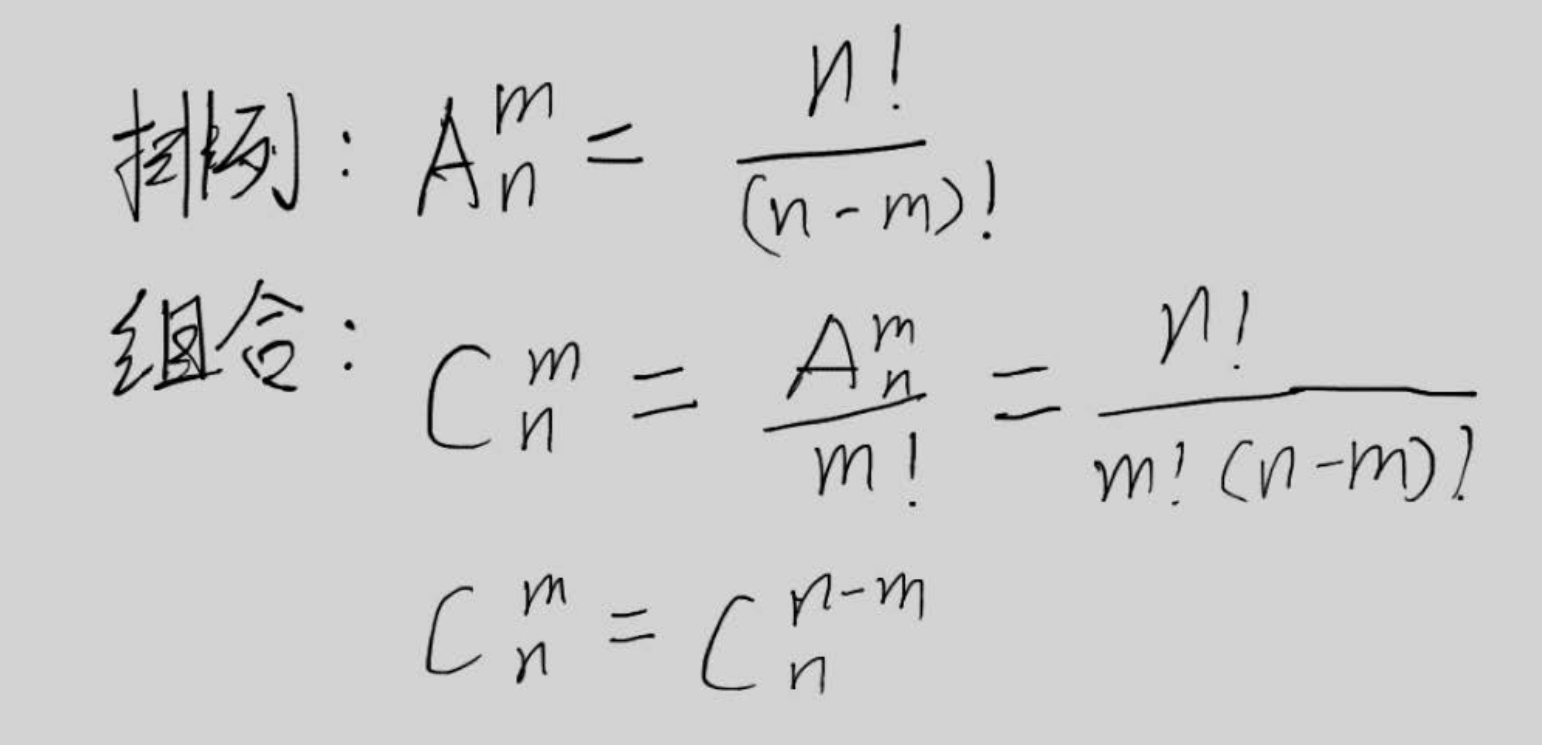 排列: A_n^m = \frac{n!}{(n-m)!}
组合: C_n^m = \frac{A_n^m}{m!} = \frac{n!}{m!(n-m)!}
C_n^m = C_n^{n-m}